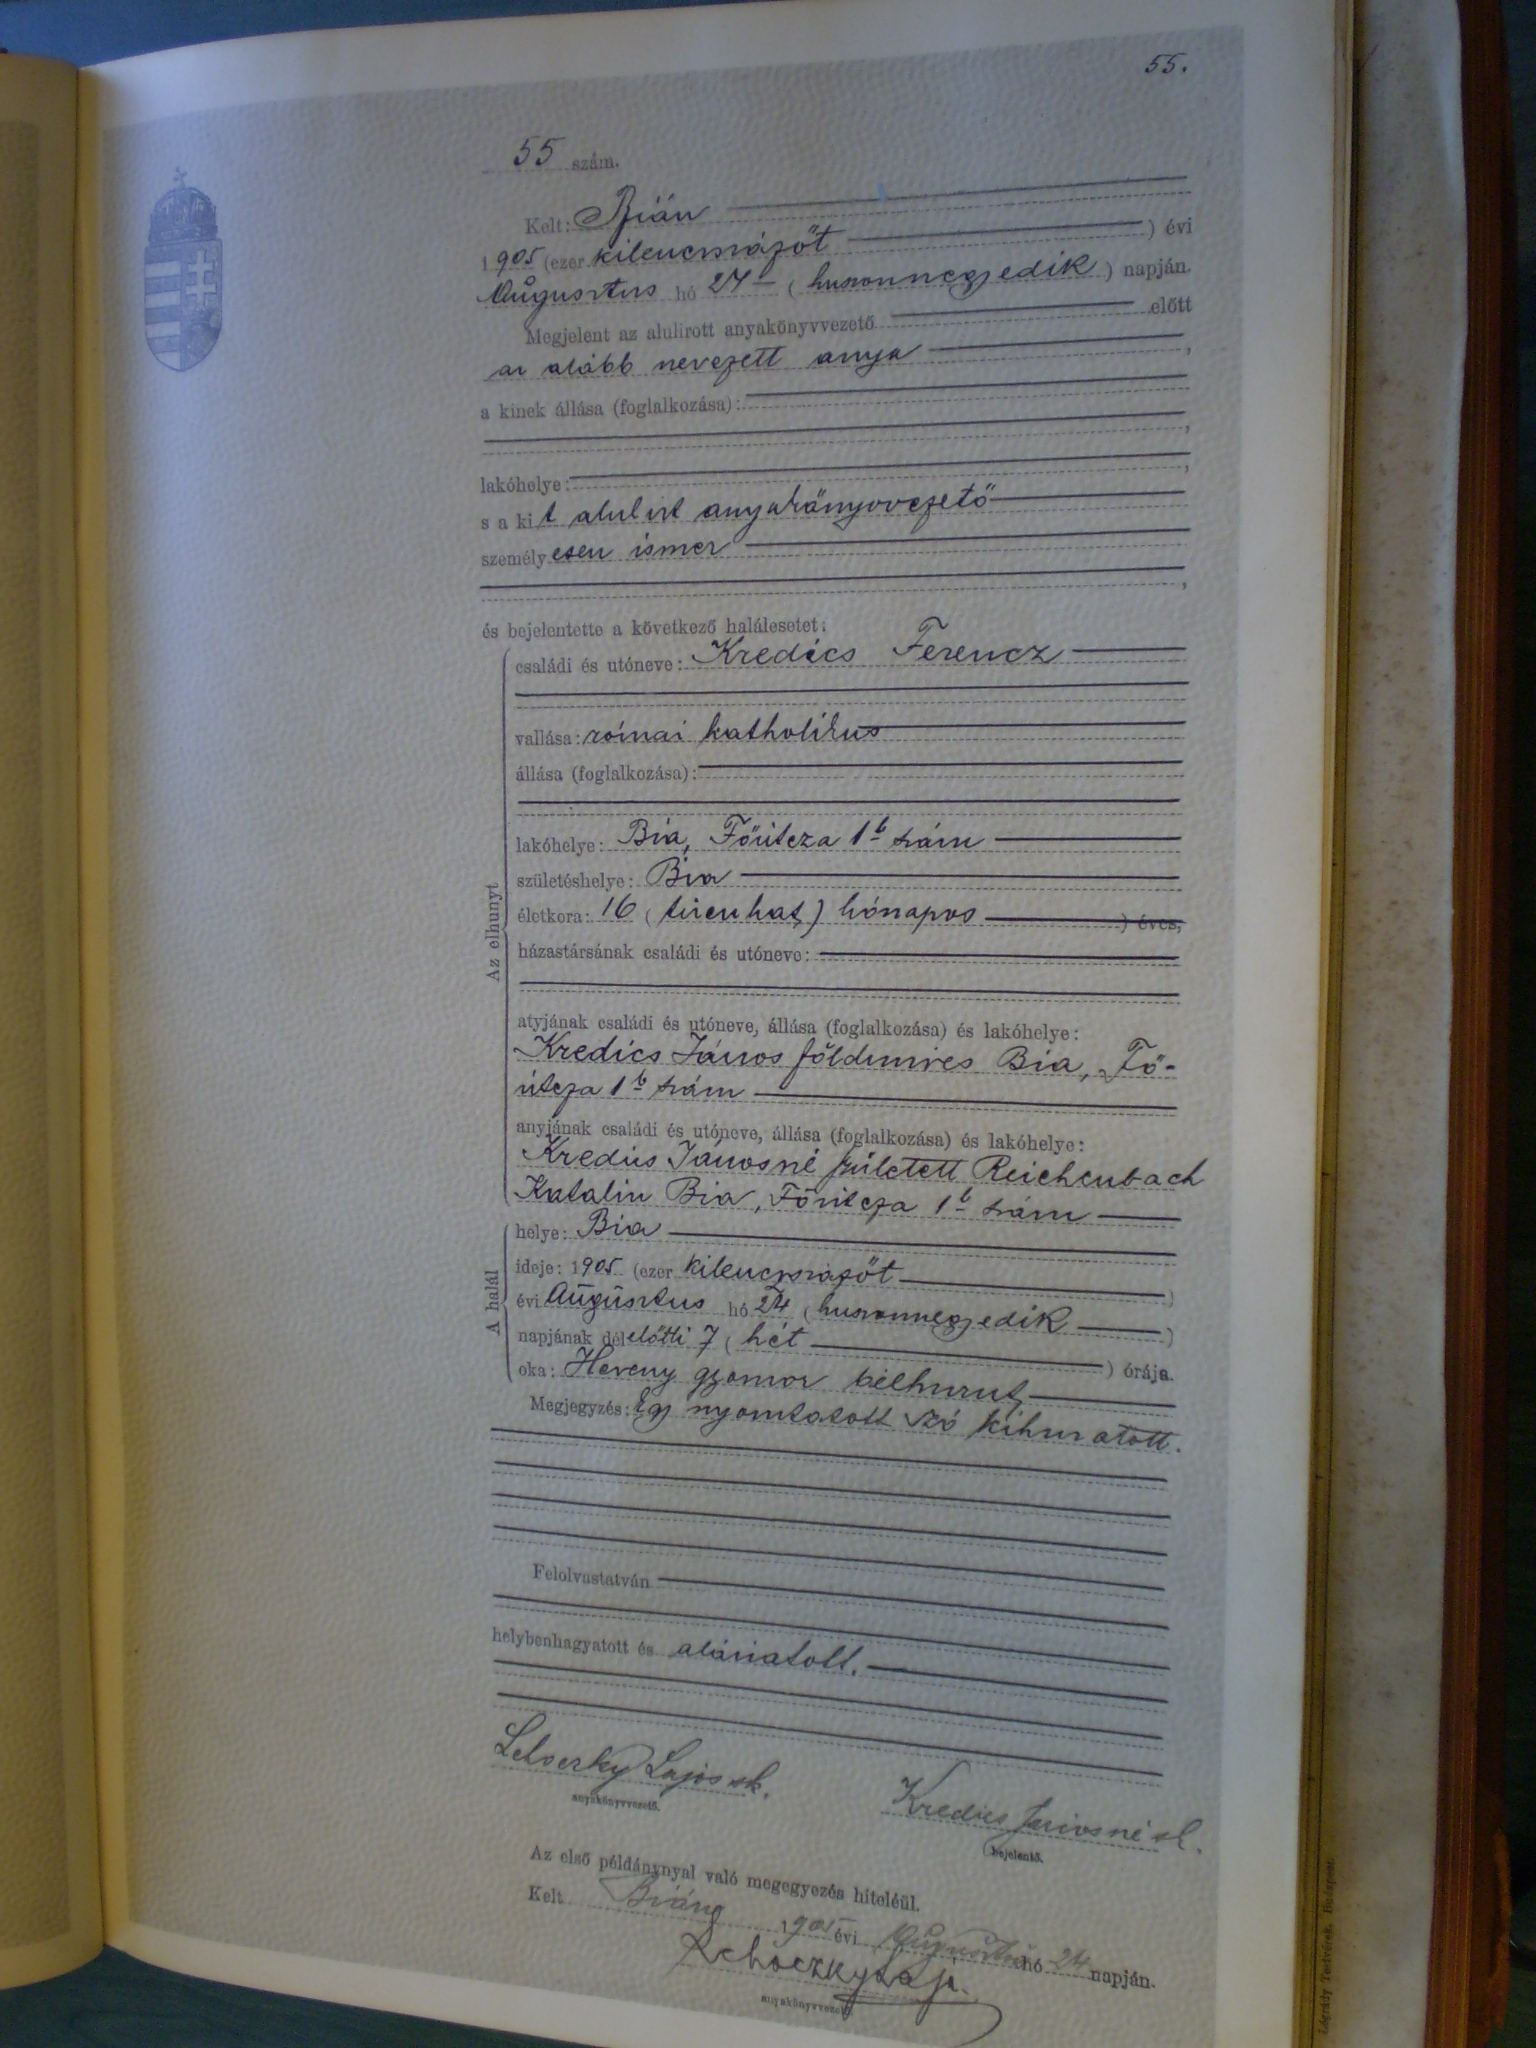 55.
55 szám.
Kelt: Bián
1905 (ezer kilenczszázöt ) évi
Augusztus hó 24 ( huszonnegyedik ) napján.
Megjelent az alulirott anyakönyvvezető előtt
az alább nevezett anya ,
a kinek állása (foglalkozása):
,
lakóhelye: ,
s a kit alulirt anyakönyvvezető
személyesen ismer
,
és bejelentette a következő halálesetet:
Az elhunyt
családi és utóneve: Kredics Ferencz
vallása: római katholikus
állása (foglalkozása):
lakóhelye: Bia, Főútcza 1b szám
születéshelye: Bia
életkora: 16 ( tizenhat ) hónapos ) éves,
házastársának családi és utóneve:
atyjának családi és utóneve, állása (foglalkozása) és lakóhelye:
Kredics János földmives Bia, Fő-
útcza 1b szám
anyjának családi és utóneve, állása (foglalkozása) és lakóhelye:
Kredics Jánosné született Reichenbach
Katalin Bia, Főútcza 1b szám
A halál
helye: Bia
ideje: 1905 (ezer kilenczszázöt )
évi Augusztus hó 24 ( huszonnegyedik )
napjának délelőtti 7 ( hét ) órája.
oka: Heveny gyomor bélhurut
Megjegyzés: Egy nyomtatott szó kihuzatott.
Felolvastatván
helybenhagyatott és aláiratott.
Lajos sk.
anyakönyvvezető.
Kredics Jánosné sk.
bejelentő.
Az első példánynyal való megegyezés hiteléül.
Kelt Bián 1905 évi Augusztus hó 24 napján.
anyakönyvvezető.
Légrády Testvérek, Budapest.